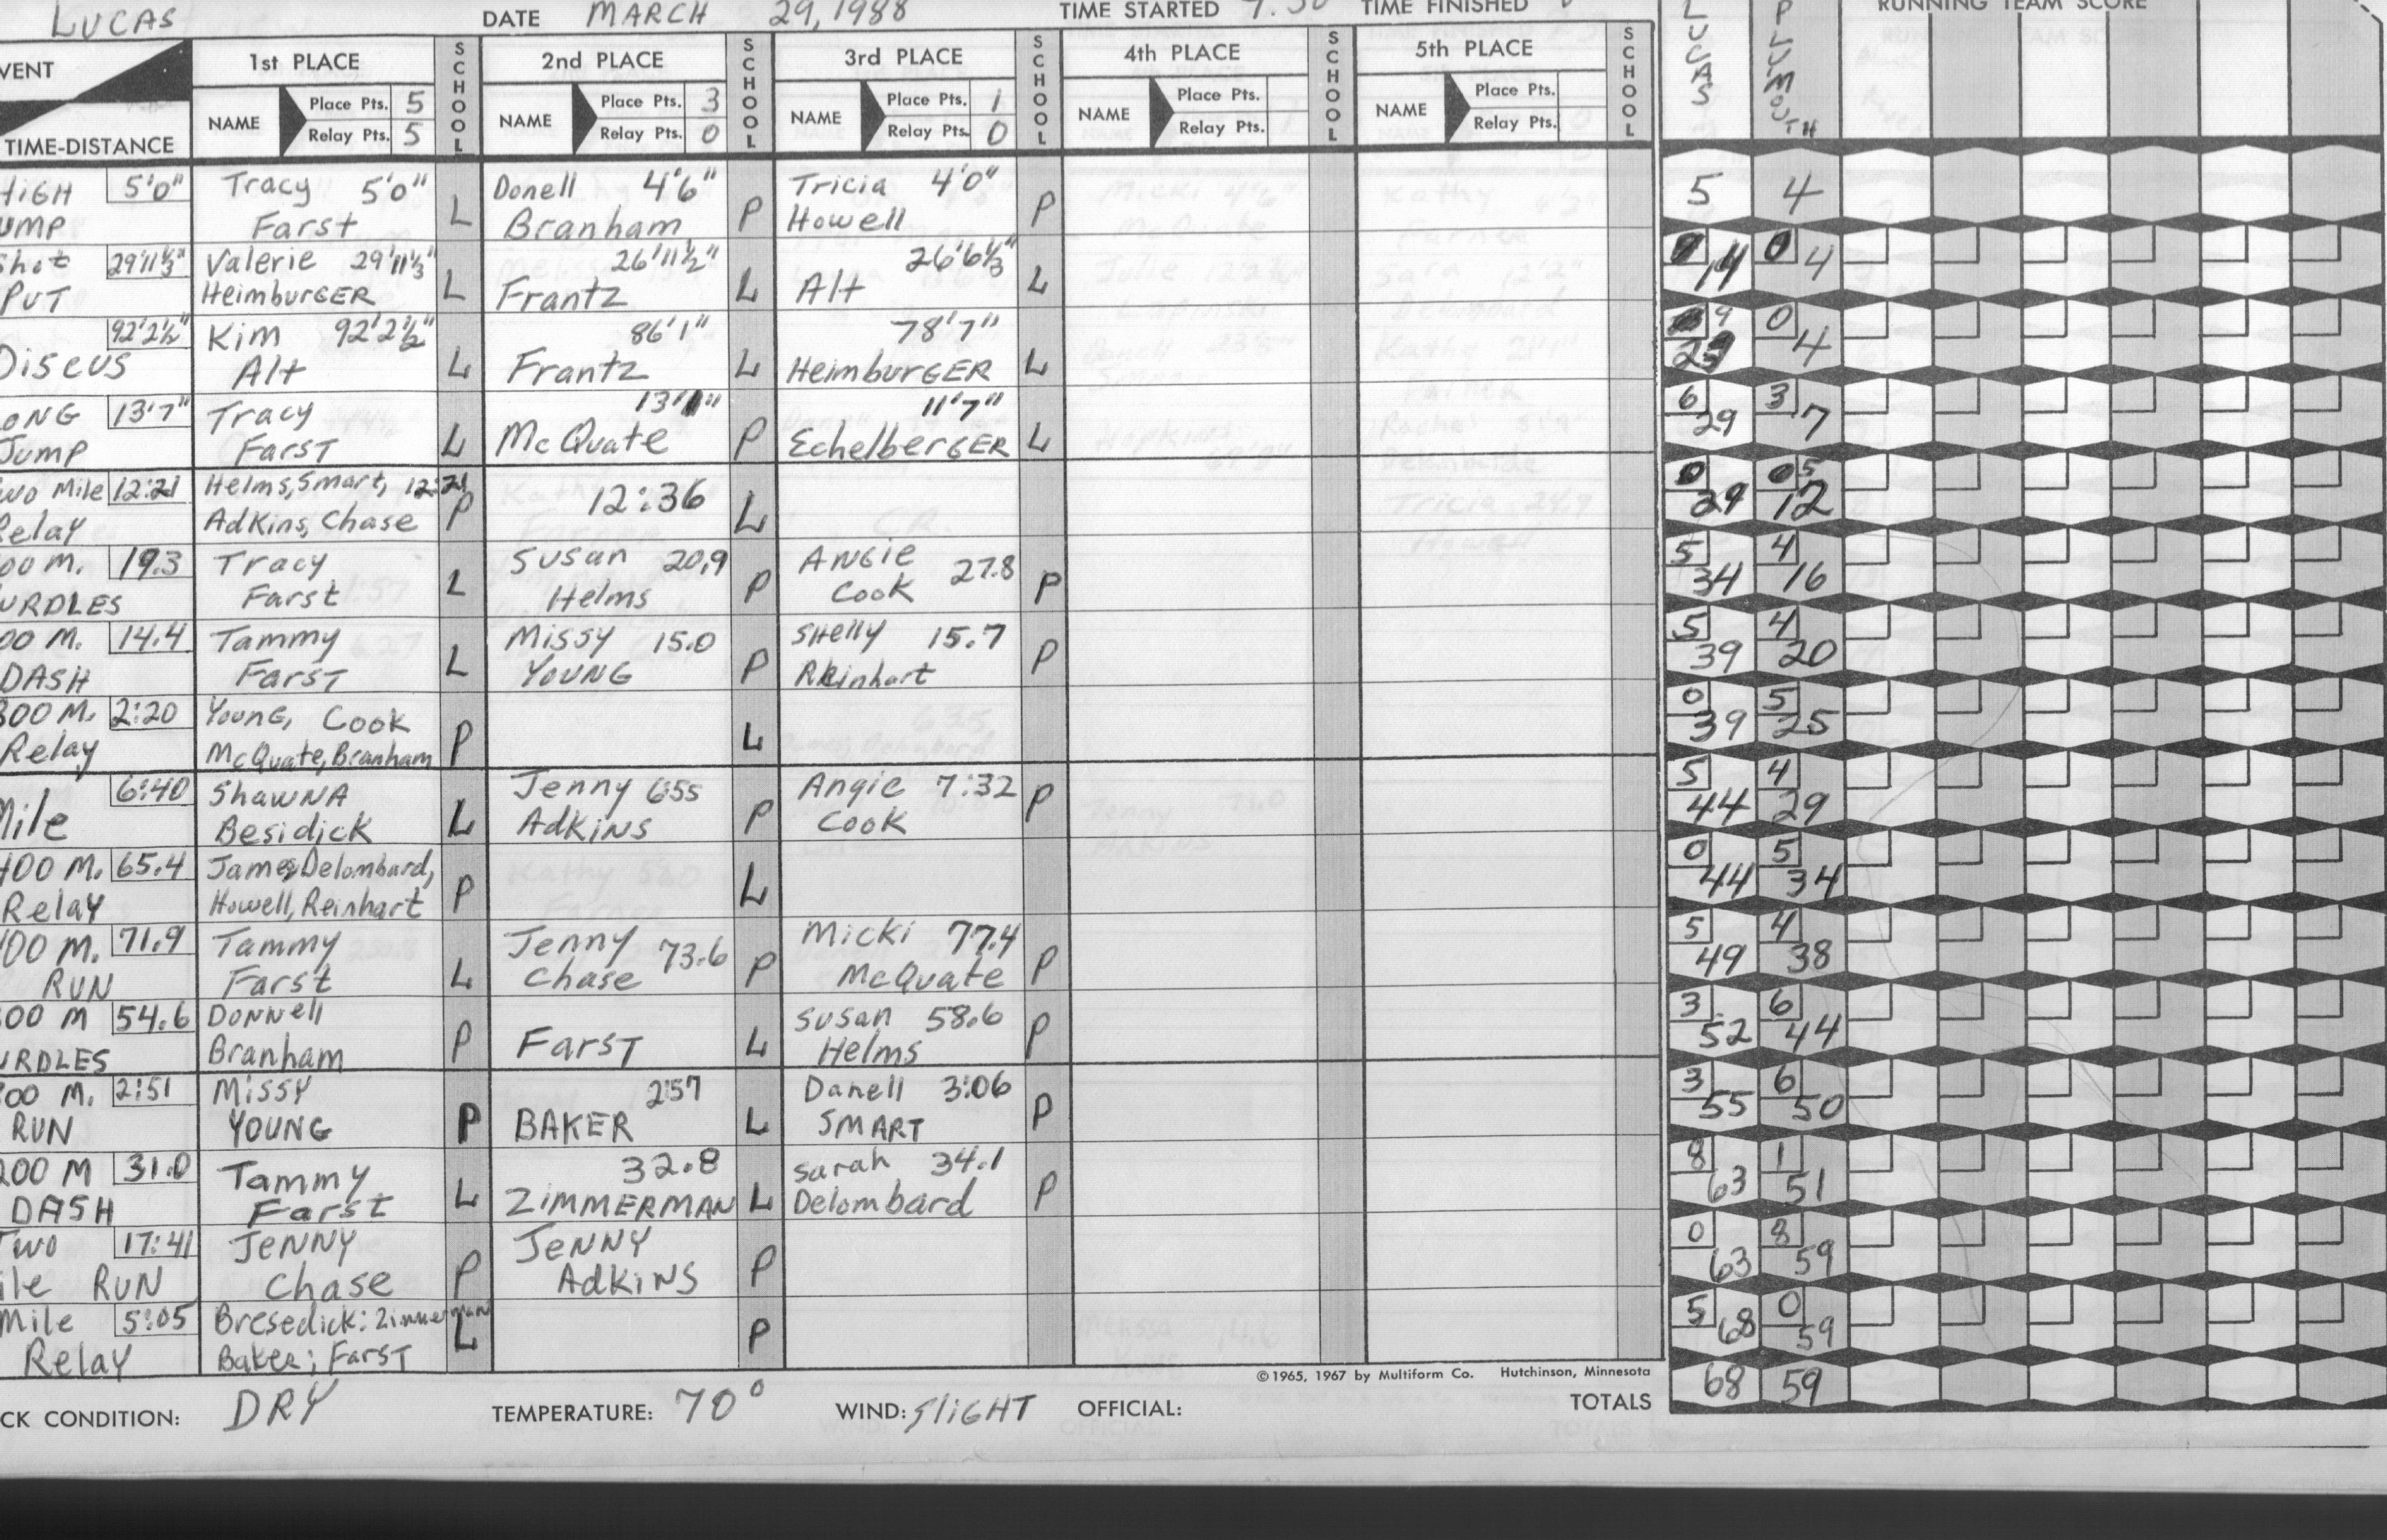 LUCAS DATE MARCH 29, 1988 TIME STARTED TIME FINISHED RUNNING TEAM SCORE
LUCAS PLUMOUTH
VENT 1st PLACE SCHOOL 2nd PLACE SCHOOL 3rd PLACE SCHOOL 4th PLACE SCHOOL 5th PLACE SCHOOL
NAME Place Pts. 5 NAME Place Pts. 3 NAME Place Pts. 1 NAME Place Pts. NAME Place Pts.
TIME-DISTANCE Relay Pts. 5 Relay Pts. 0 Relay Pts. 0 Relay Pts. Relay Pts.
HIGH 5'0" Tracy 5'0" Donell 4'6" Tricia 4'0" 5 4
UMP Farst L Branham P Howell P
Shot 29'11½" Valerie 29'11½" 26'11½" 26'6½" 0
PUT HeimburGER L Frantz L Alt L 14 4
92'2½" Kim 92'2½" 86'1" 78'7" 9 0
Discus Alt L Frantz L HeimburGER L 23 4
ONG 13'7" Tracy 13'1" 11'7" 6 3
Jump FarsT L McQuate P EchelberGER L 29 7
wo Mile 12:21 Helms, Smart, 12:21 12:36 0 5
Relay Adkins, Chase P L 29 12
00 M. 19.3 Tracy Susan 20.9 ANGiE 27.8 5 4
URDLES Farst L Helms P Cook P 34 16
00 M. 14.4 Tammy Missy 15.0 SHelly 15.7 5 4
DASH FarsT L YOUNG P Reinhart P 39 20
800 M. 2:20 YounG, Cook 0 5
Relay McQuate, Branham P L 39 25
6:40 ShawNA Jenny 6:55 Angie 7:32 5 4
Mile Besidick L AdkiNS P Cook P 44 29
400 M. 65.4 James, Delombard, 0 5
Relay Howell, Reinhart P L 44 34
400 M. 71.9 Tammy Jenny 73.6 Micki 77.4 5 4
RUN Farst L Chase P McQuate P 49 38
00 M 54.6 DoNNell Susan 58.6 3 6
URDLES Branham P FarsT L Helms P 52 44
800 M. 2:51 Missy 2:57 Danell 3:06 3 6
RUN YOUNG P BAKER L SMART P 55 50
200 M 31.0 Tammy 32.8 Sarah 34.1 8 1
DASH Farst L ZiMMERMAN L Delombard P 63 51
Two 17:41 JENNY JENNY 0 8
ile RUN Chase P AdkiNS P 63 59
Mile 5:05 Bresedick; Zimmerman 5 0
Relay Baker; FarsT L P 68 59
©1965, 1967 by Multiform Co. Hutchinson, Minnesota
CK CONDITION: DRY TEMPERATURE: 70° WIND: SliGHT OFFICIAL: TOTALS 68 59